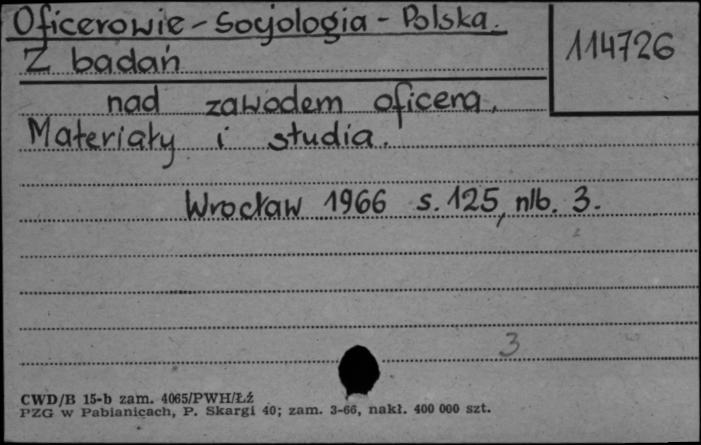 Oficerowie - Socjologia - Polska.
114726
Z badań
nad zawodem oficera.
Materiały i studia.
Wrocław 1966 s. 125, nlb. 3.
3
CWD/B 15-b zam. 4065/PWH/ŁŹ
PZG w Pabianicach, P. Skargi 40; zam. 3-66, nakł. 400 000 szt.